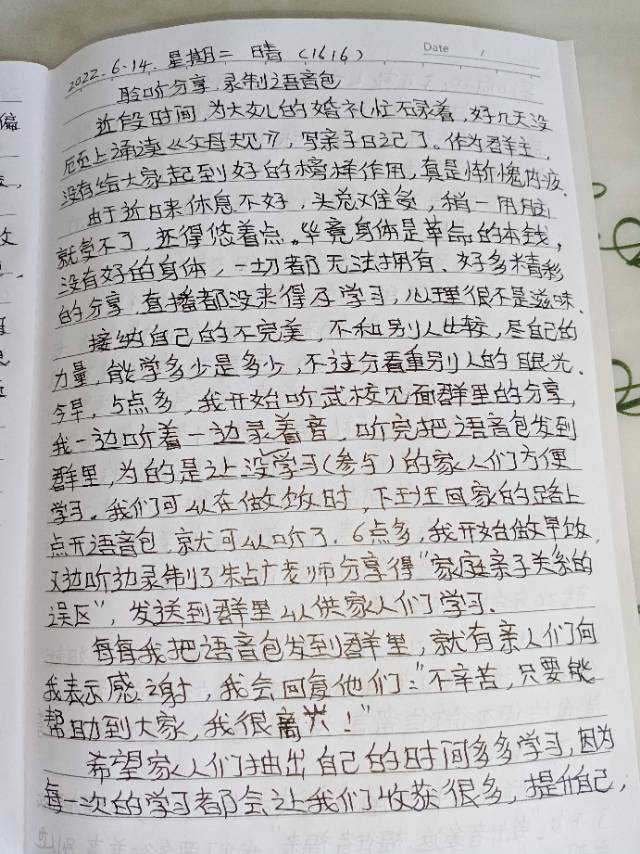 2022.6.14. 星期二 晴 (1616)
Date /
聆听分享.录制语音包
近段时间,为大女儿的婚礼忙不录着,好几天没
有上诵读《父母规》,写亲子日记了。作为群主,
没有给大家起到好的榜样作用,真是惭愧内疚.
由于近日来休息不好,头总难受,稍一用脑
就受不了,还得悠着点。毕竟身体是革命的本钱,
没有好的身体,一切都无法拥有.好多精彩
的分享,直播都没来得及学习,心理很不是滋味.
接纳自己的不完美,不和别人比较,尽自己的
力量,能学多少是多少,不过分看重别人的眼光.
今早,5点多,我开始听武校见面群里的分享,
我一边听着一边录着音,听完把语音包发到
群里,为的是让没学习(参与)的家人们方便
学习.我们可以在做饭时,下班回家的路上
点开语音包,就可以听了.6点多,我开始做早饭,
又边听边录制了朱占广老师分享得"家庭亲子关系的
误区",发送到群里以供家人们学习.
每每我把语音包发到群里,就有亲人们向
我表示感谢,我会回复他们:"不辛苦,只要能
帮助到大家,我很高兴!"
希望家人们抽出自己的时间多多学习,因为
每一次的学习都会让我们收获很多,提升自己,
偏